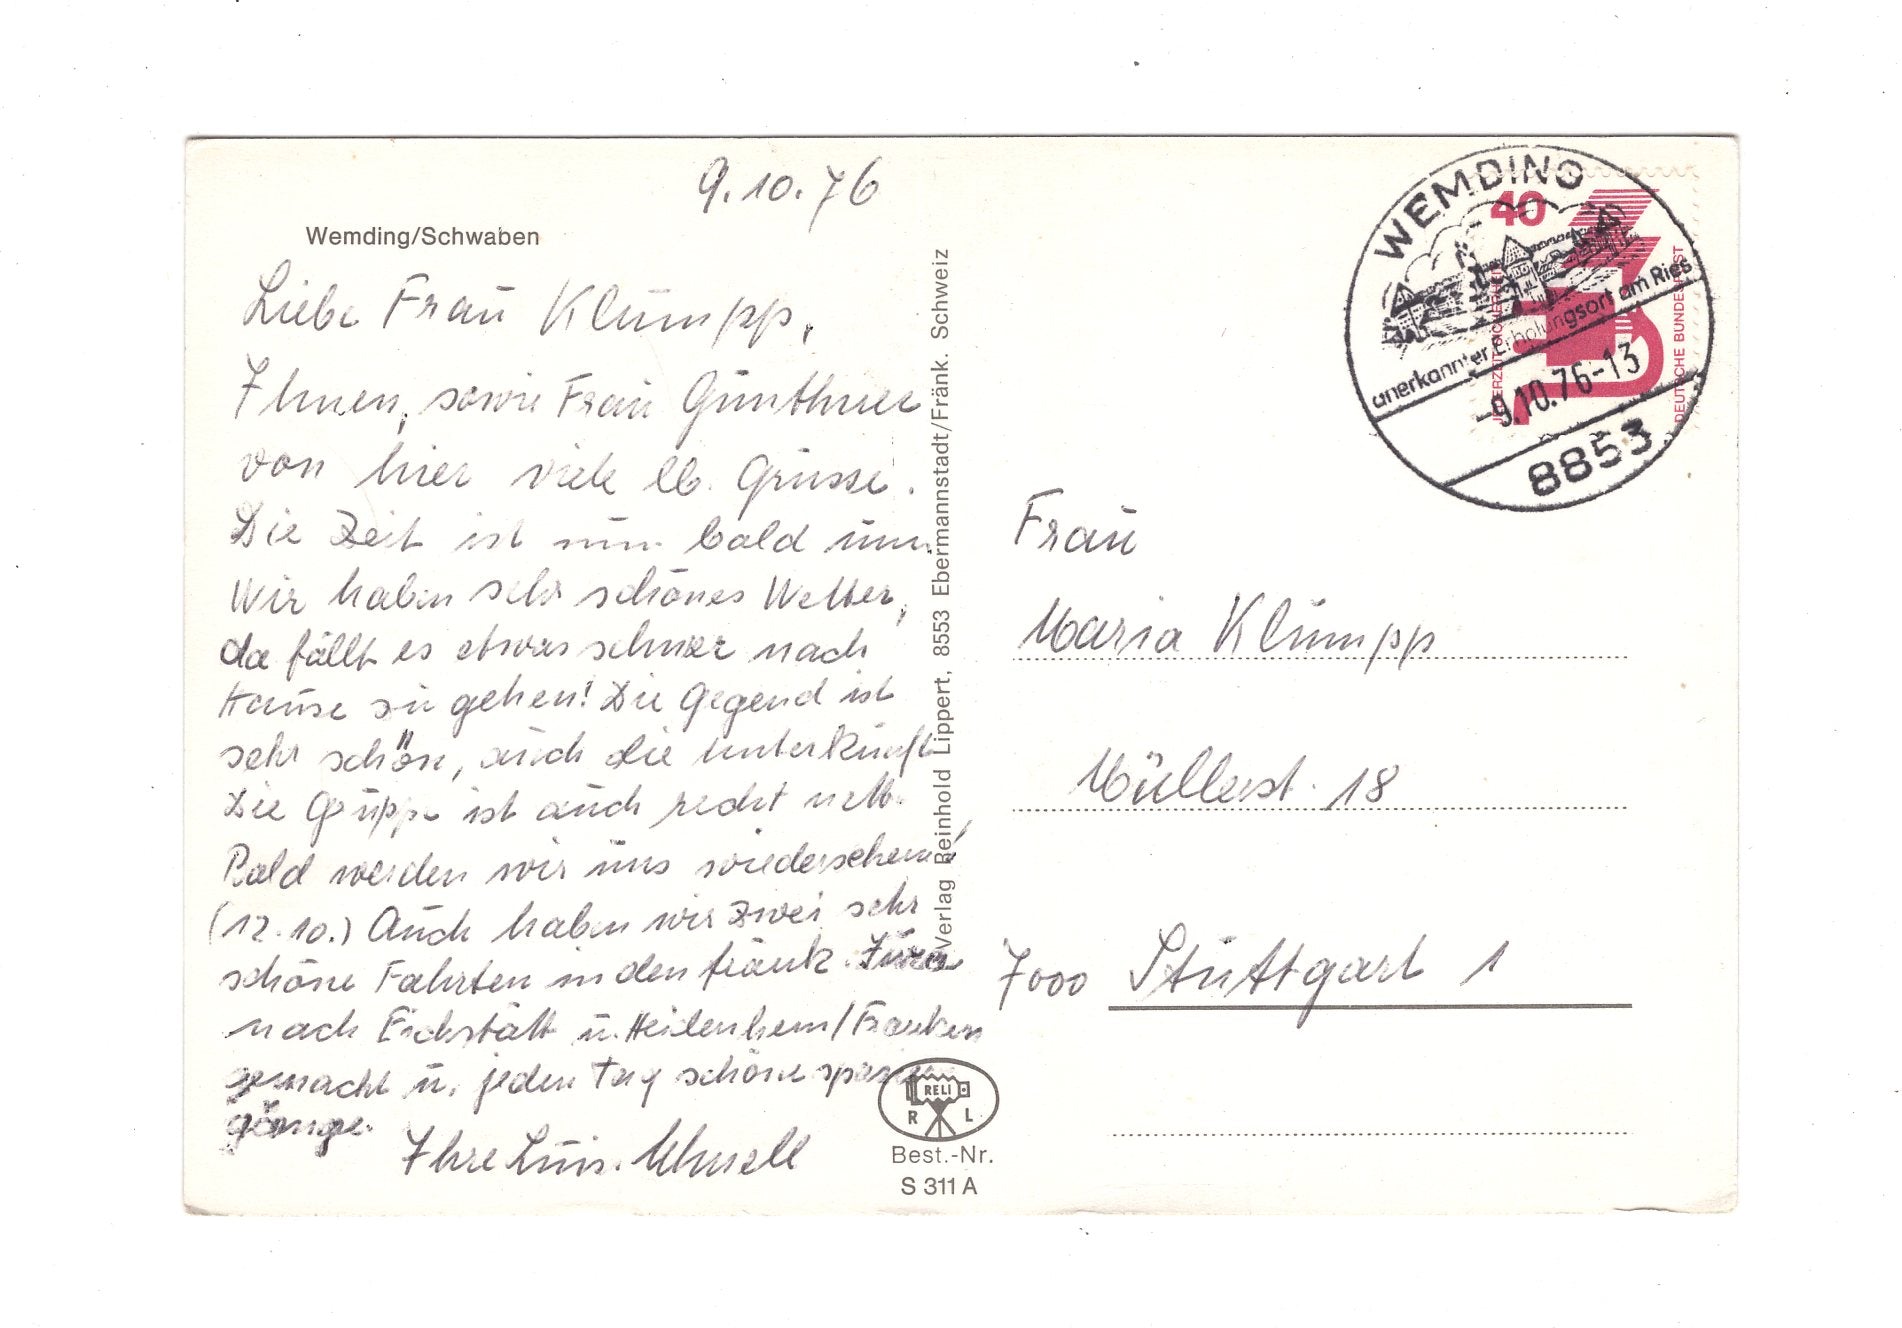 9.10.76
Wemding/Schwaben
Liebe Frau Klumpp,
Ihnen, sowie Frau Günthner
von hier viele lb. Grüsse.
Die Zeit ist nun bald um.
Wir haben sehr schönes Wetter,
da fällt es etwas schwer nach
Hause zu gehen! Die Gegend ist
sehr schön, auch die Unterkunft
Die Gruppe ist auch recht nett.
Bald werden wir uns wiedersehen!
(12.10.) Auch haben wir zwei sehr
schöne Fahrten in den fränk. Jura
nach Eichstätt u. Heidenheim/Franken
gemacht u. jeden Tag schöne Spazier
gänge.
Ihre Luis.
Verlag Reinhold Lippert, 8553 Ebermannstadt/Fränk. Schweiz
RELI
R L
Best.-Nr.
S 311 A
WEMDING
anerkannter Erholungsort am Ries
-9.10.76-13
8853
40
JEDERZEIT SICHERHEIT
DEUTSCHE BUNDESPOST
Frau
Maria Klumpp
Müllerst. 18
7000 Stuttgart 1